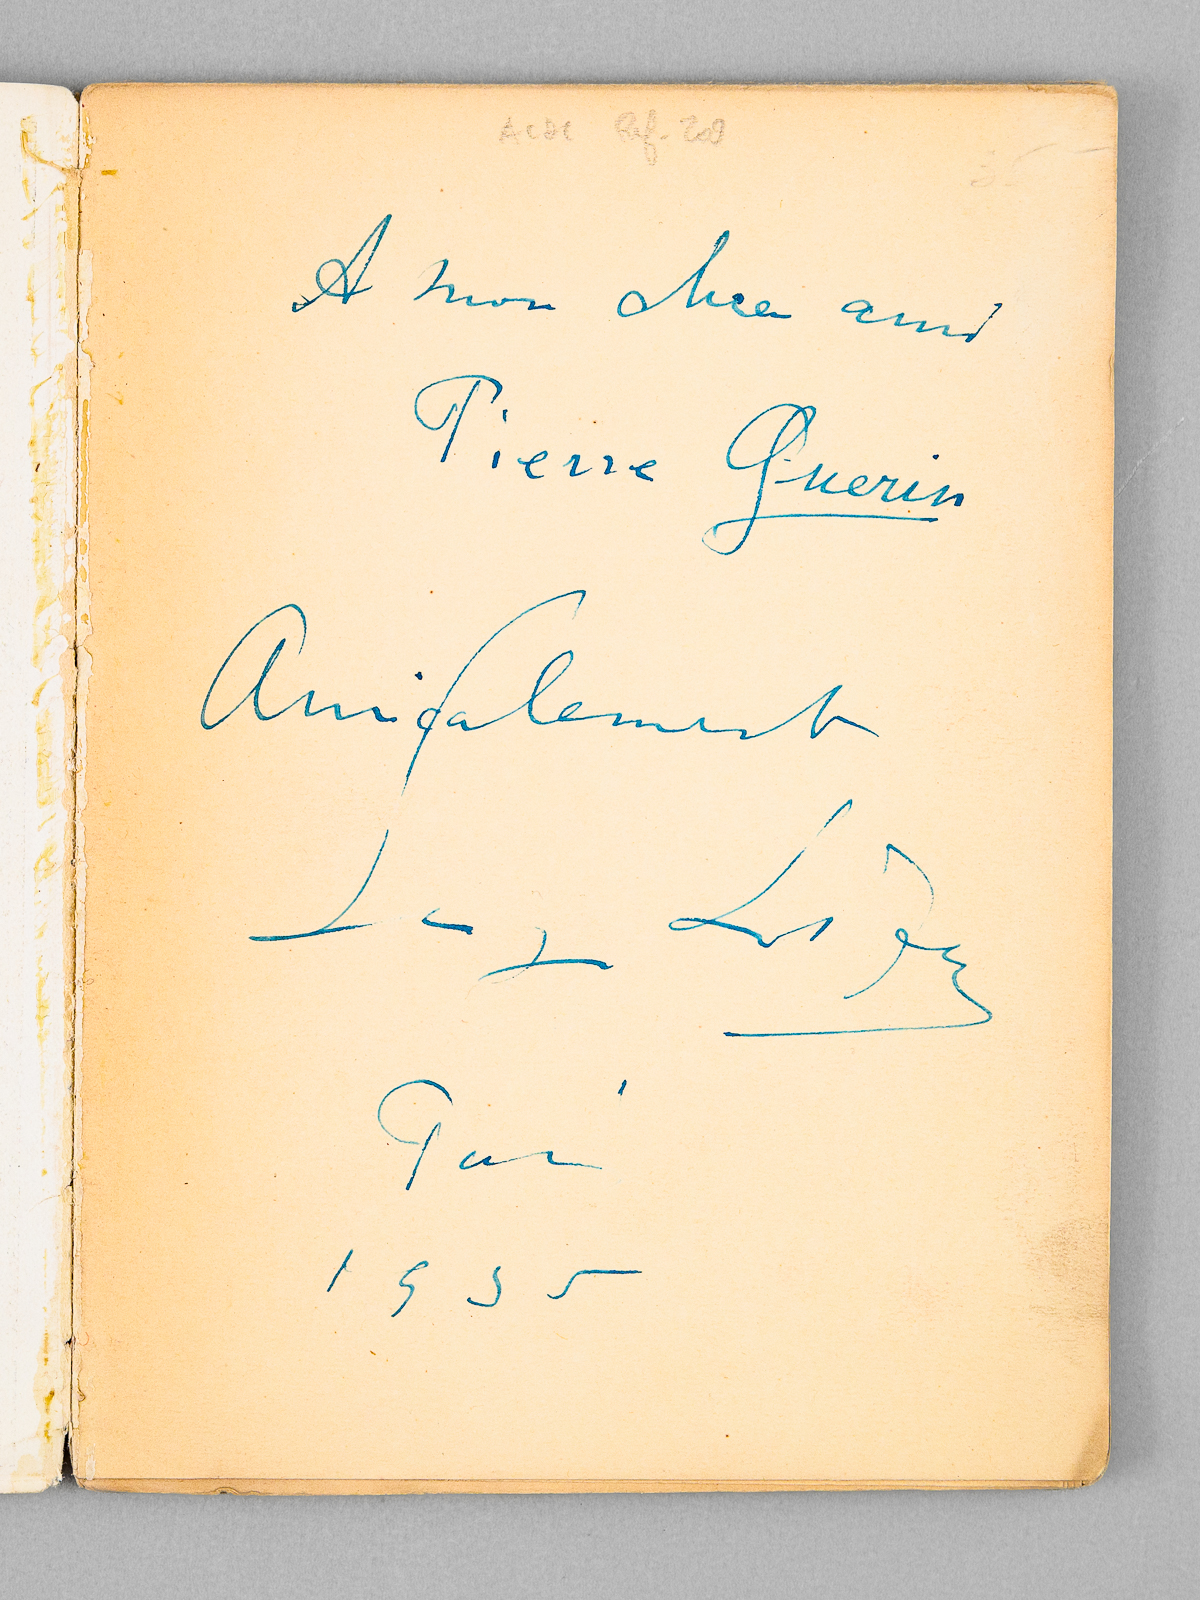 Ref. 20
A mon cher ami
Pierre Guerin
Amicalement
Paris
1935